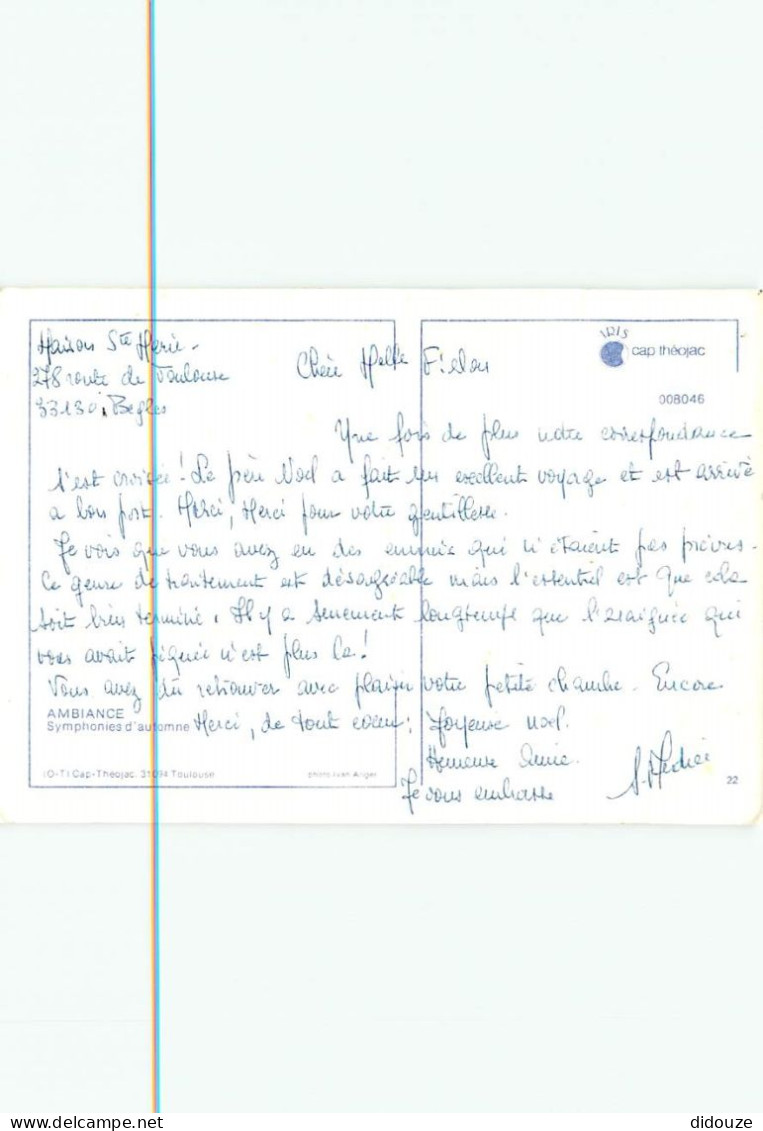 Maison Ste Marie -
278 route de Toulouse
33130 Begles
IRIS
cap théojac
008046
Chère Melle
Une fois de plus notre correspondance
s'est croisée ! Le père Noel a fait un excellent voyage et est arrivé
a bon port. Merci, Merci pour votre gentillesse.
Je vois que vous avez eu des ennuis qui n'étaient pas prévus -
Ce genre de traitement est désagréable mais l'essentiel est que cela
soit bien terminé. Il y a surement longtemps que l'araignée qui
vous avait piquée n'est plus la !
Vous avez du retrouver avec plaisir votre petite chambre. Encore
AMBIANCE
Symphonies d'automne
Merci, de tout coeur : Joyeuse Noel.
Heureuse Année.
Je vous embrasse
(O-T) Cap-Théojac, 31094 Toulouse
photo Ivan Anger
22
didouze